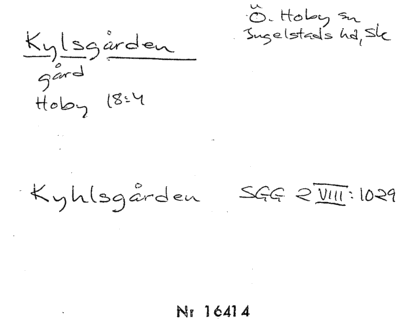 Kylsgården
Ö. Hoby sn
Ingelstads hd, Sk
gård
Hoby 18:4
Kyhlsgården SGG 2 VIII: 1029
Nr 16414